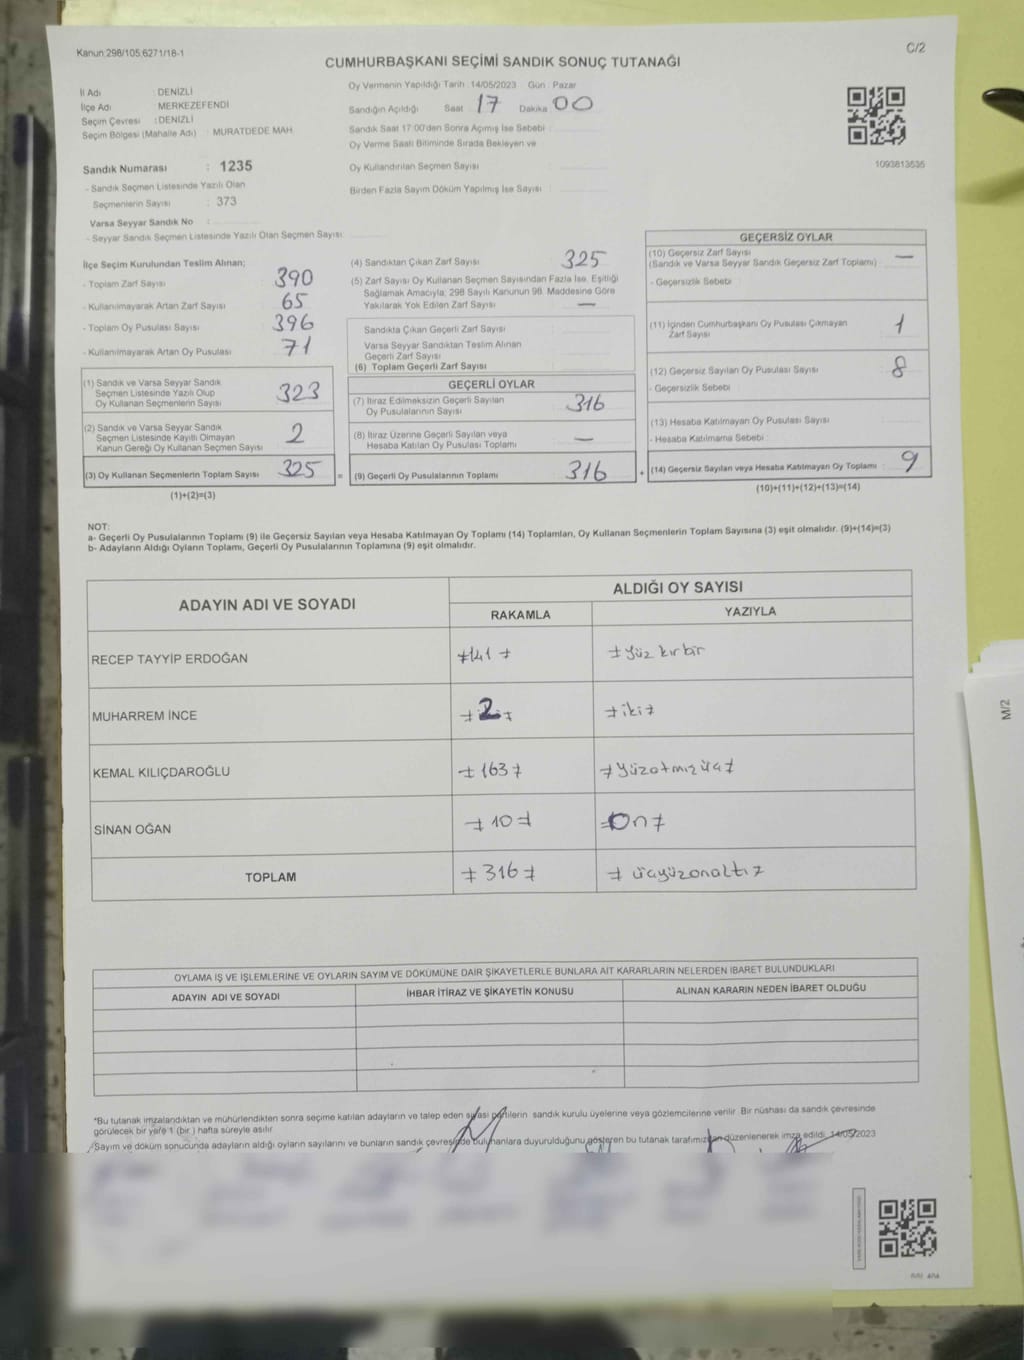 Kanun:298/105,6271/18-1
C/2
CUMHURBAŞKANI SEÇİMİ SANDIK SONUÇ TUTANAĞI
İl Adı : DENİZLİ
İlçe Adı : MERKEZEFENDİ
Seçim Çevresi : DENİZLİ
Seçim Bölgesi (Mahalle Adı) : MURATDEDE MAH.
Sandık Numarası : 1235
- Sandık Seçmen Listesinde Yazılı Olan
Seçmenlerin Sayısı : 373
Varsa Seyyar Sandık No :
- Seyyar Sandık Seçmen Listesinde Yazılı Olan Seçmen Sayısı:
Oy Vermenin Yapıldığı Tarih : 14/05/2023 Gün : Pazar
Sandığın Açıldığı Saat 17 Dakika 00
Sandık Saat 17:00'den Sonra Açılmış İse Sebebi :
Oy Verme Saati Bitiminde Sırada Bekleyen ve
Oy Kullandırılan Seçmen Sayısı
Birden Fazla Sayım Döküm Yapılmış İse Sayısı :
1093813535
İlçe Seçim Kurulundan Teslim Alınan;
- Toplam Zarf Sayısı : 390
- Kullanılmayarak Artan Zarf Sayısı : 65
- Toplam Oy Pusulası Sayısı : 396
- Kullanılmayarak Artan Oy Pusulası : 71
(1) Sandık ve Varsa Seyyar Sandık
Seçmen Listesinde Yazılı Olup
Oy Kullanan Seçmenlerin Sayısı 323
(2) Sandık ve Varsa Seyyar Sandık
Seçmen Listesinde Kayıtlı Olmayan
Kanun Gereği Oy Kullanan Seçmen Sayısı 2
(3) Oy Kullanan Seçmenlerin Toplam Sayısı 325 =
(1)+(2)=(3)
(4) Sandıktan Çıkan Zarf Sayısı : 325
(5) Zarf Sayısı Oy Kullanan Seçmen Sayısından Fazla İse, Eşitliği
Sağlamak Amacıyla; 298 Sayılı Kanunun 98. Maddesine Göre
Yakılarak Yok Edilen Zarf Sayısı : —
Sandıkta Çıkan Geçerli Zarf Sayısı :
Varsa Seyyar Sandıktan Teslim Alınan
Geçerli Zarf Sayısı :
(6) Toplam Geçerli Zarf Sayısı
GEÇERLİ OYLAR
(7) İtiraz Edilmeksizin Geçerli Sayılan
Oy Pusulalarının Sayısı : 316
(8) İtiraz Üzerine Geçerli Sayılan veya
Hesaba Katılan Oy Pusulası Toplamı : —
(9) Geçerli Oy Pusulalarının Toplamı : 316 +
GEÇERSİZ OYLAR
(10) Geçersiz Zarf Sayısı
(Sandık ve Varsa Seyyar Sandık Geçersiz Zarf Toplamı) : —
- Geçersizlik Sebebi :
(11) İçinden Cumhurbaşkanı Oy Pusulası Çıkmayan
Zarf Sayısı : 1
(12) Geçersiz Sayılan Oy Pusulası Sayısı : 8
- Geçersizlik Sebebi :
(13) Hesaba Katılmayan Oy Pusulası Sayısı :
- Hesaba Katılmama Sebebi :
(14) Geçersiz Sayılan veya Hesaba Katılmayan Oy Toplamı : 9
(10)+(11)+(12)+(13)=(14)
NOT:
a- Geçerli Oy Pusulalarının Toplamı (9) ile Geçersiz Sayılan veya Hesaba Katılmayan Oy Toplamı (14) Toplamları, Oy Kullanan Seçmenlerin Toplam Sayısına (3) eşit olmalıdır. (9)+(14)=(3)
b- Adayların Aldığı Oyların Toplamı, Geçerli Oy Pusulalarının Toplamına (9) eşit olmalıdır.
ADAYIN ADI VE SOYADI
ALDIĞI OY SAYISI
RAKAMLA YAZIYLA
RECEP TAYYİP ERDOĞAN ≠141≠ ≠yüz kırbir
MUHARREM İNCE ≠2≠ ≠iki≠
KEMAL KILIÇDAROĞLU ≠163≠ ≠yüzatmışüç≠
SİNAN OĞAN ≠10≠ ≠On≠
TOPLAM ≠316≠ ≠üçyüzonaltı≠
OYLAMA İŞ VE İŞLEMLERİNE VE OYLARIN SAYIM VE DÖKÜMÜNE DAİR ŞİKAYETLERLE BUNLARA AİT KARARLARIN NELERDEN İBARET BULUNDUKLARI
ADAYIN ADI VE SOYADI İHBAR İTİRAZ VE ŞİKAYETİN KONUSU ALINAN KARARIN NEDEN İBARET OLDUĞU
*Bu tutanak imzalandıktan ve mühürlendikten sonra seçime katılan adayların ve talep eden siyasi partilerin sandık kurulu üyelerine veya gözlemcilerine verilir. Bir nüshası da sandık çevresinde
görülecek bir yere 1 (bir ) hafta süreyle asılır.
Sayım ve döküm sonucunda adayların aldığı oyların sayılarını ve bunların sandık çevresinde bulunanlara duyurulduğunu gösteren bu tutanak tarafımızdan düzenlenerek imza edildi. 14/05/2023
M/2